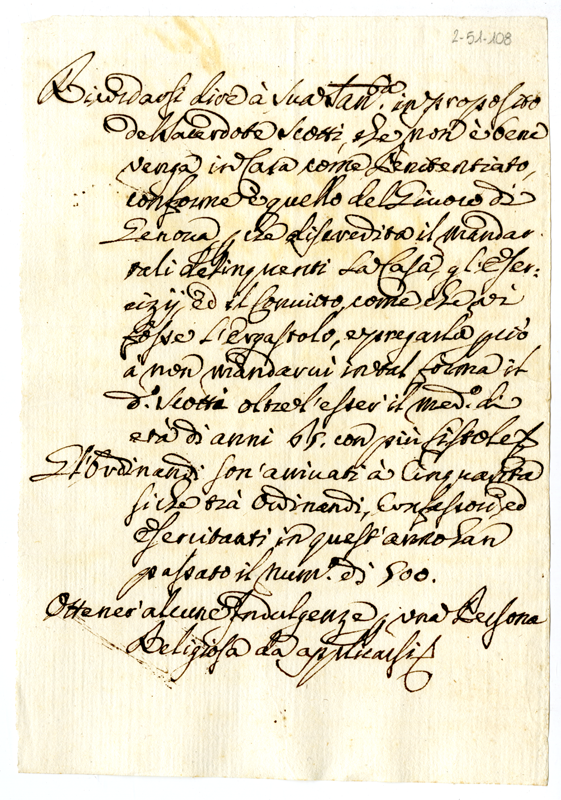 2-51-108
Ricordarsi dire à Sua San.tà in proposito
del Sacerdote Scotti, che non è bene
venga in Casa come Penitentiato,
conforme è quello del di
Genova, che discredita il mandar
tali delinquenti la Casa, gl'Eser-
cizij ed il Convitto, come che vi
fosse l'Ergastolo, e pregarlo perciò
à non mandarvi in tal forma il
d.o Scotti oltre l'esser il med.o di
età di anni 65. con più fistole
Gl'Ordinandi son' arrivati à Cinquanta
siche trà Ordinandi, Confessori ed
Esercitanti in quest'anno han
passato il num.o di 500.
Ottener' alcune Indulgenze p una Persona
Religiosa da applicarsi